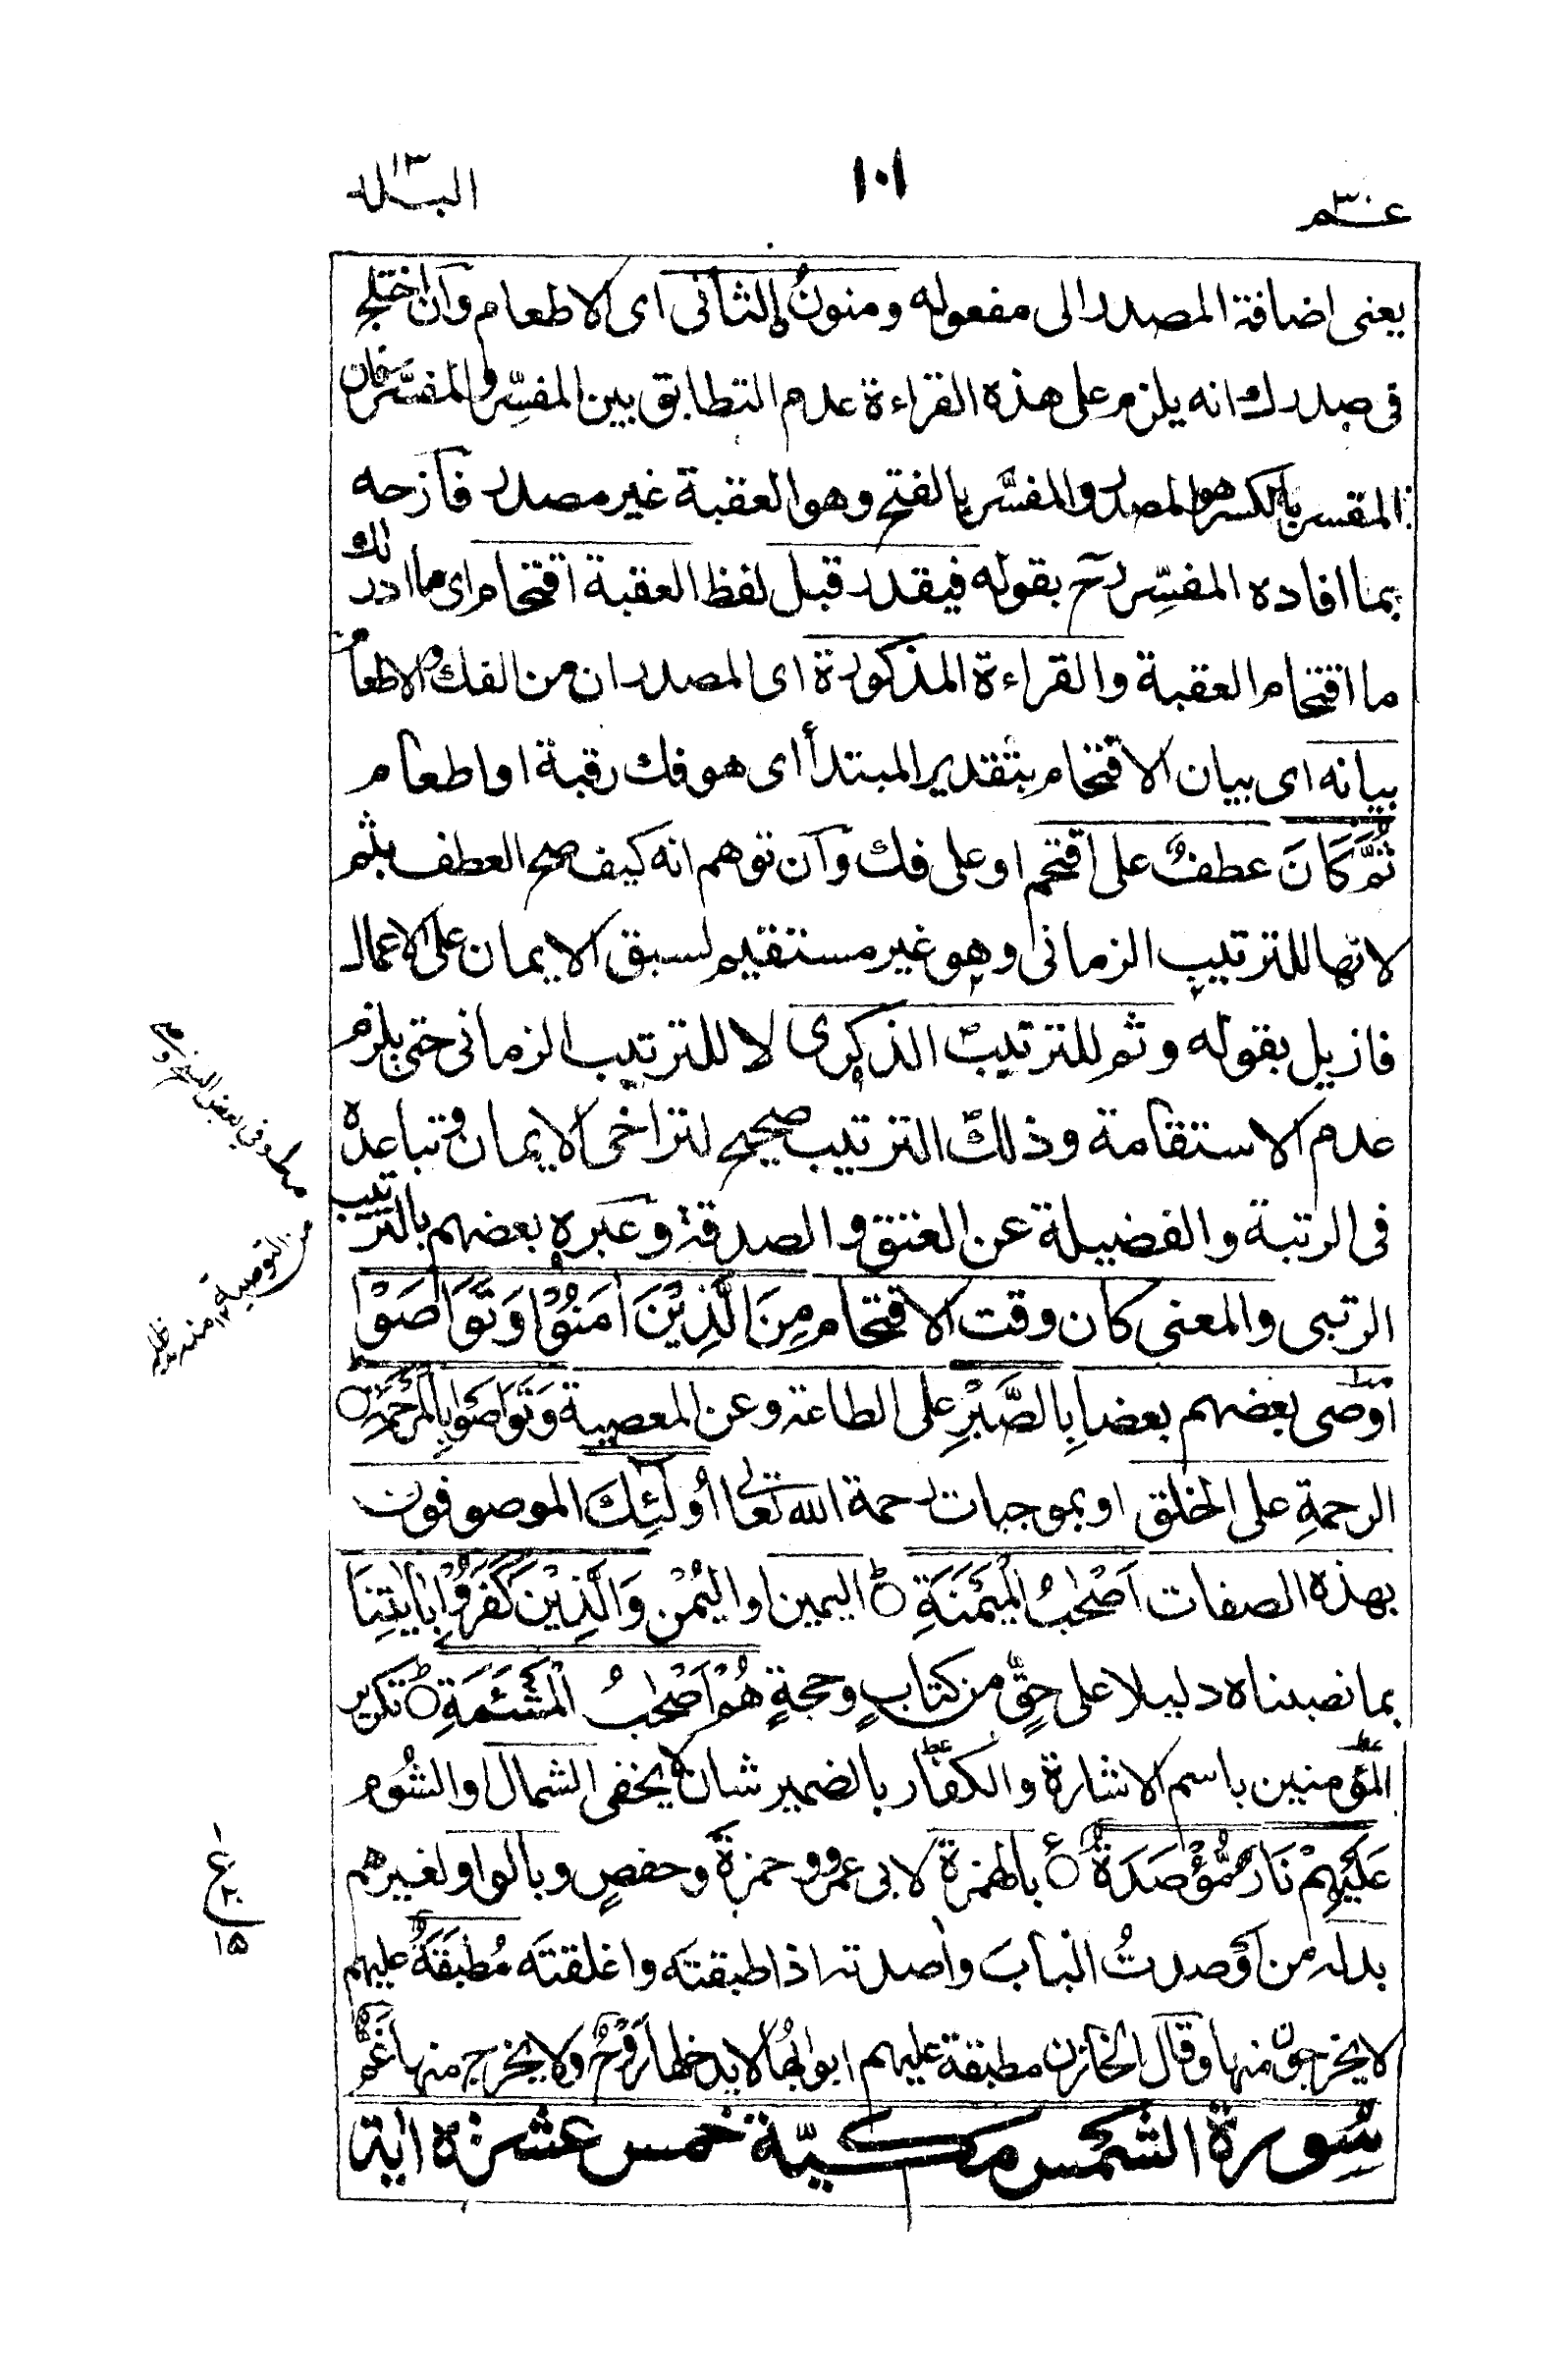 عـــم ٣٠
١٠١
البـــلد ١٣
يعنى اضافة المصدر الى مفعوله ومنونُ الثانى اى الاطعام وان اختلج
فى صدرك انه يلزم على هذه القراءة عدم التطابق بين المفسِّر والمفسَّر فان
المفسر بالكسر هو المصدر والمفسَّر بالفتح وهو العقبة غير مصدر فأزحه
بما افاده المفسِّر رح بقوله فيقدر قبل لفظ العقبة اقتحام اى ما ادرٰىك
ما اقتحام العقبة والقراءة المذكورة اى المصدران من الفك والاطعام
بيانه اى بيان الاقتحام بتقدير المبتدأ اى هو فك رقبة او اطعام
ثُمَّ كَانَ عطفٌ على اقتحم او على فك وان توهم انه كيف صح العطف بثم
لانها للترتيب الزمانى وهو غير مستقيم لسبق الايمان على الاعمال
فازيل بقوله وثم للترتيب الذكرى لا للترتيب الزمانى حتى يلزم
عدم الاستقامة وذلك الترتيب صحيح لتراخى الايمان وتباعده
فى الرتبة والفضيلة عن العتق والصدقة وعبره بعضهم بالترتيب
الرتبى والمعنى كان وقت الاقتحام مِنَ الَّذِيْنَ اٰمَنُوْا وَتَوَاصَوْا
اوصى بعضهم بعضا بِالصَّبْرِ على الطاعة وعن المعصية وَتَوَاصَوْا بِالْمَرْحَمَةِ
الرحمةِ على الخلق او بموجبات رحمة الله تعالى اُولٰٓئِكَ الموصوفون
بهذه الصفات اَصْحٰبُ الْمَيْمَنَةِ اليمين او اليُمْن وَالَّذِيْنَ كَفَرُوْا بِاٰيٰتِنَا
بما نصبناه دليلا على حقٍّ من كتابٍ وحجةٍ هُمْ اَصْحٰبُ الْمَشْئَمَةِ تكرير
المؤمنين باسم الاشارة والكفّار بالضمير شان لا يخفى الشمال او الشُوم
عَلَيْهِمْ نَارٌ مُّؤْصَدَةٌ بالهمزة لابى عمرو وحمزة وحفصٍ وبالواو لغيرهم
بدله من اوصدتُ البابَ واصدته اذا طبقتَه واغلقتَه مُطبَقَةٌ عليهم
لا يخرجون منها وقال الخازن مطبقة عليهم ابوابُها لا يدخلها رَوْحٌ ولا يخرج منها غَمٌّ
سُورة الشمس مكـــيّة خمس عشرة اٰية
وفى بعض النسخ
من التوصية ١٢ منه مد ظله
١
ع
٢٠
١٥